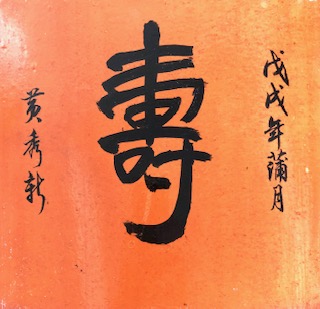 戊戌年蒲月
壽
黃秀新